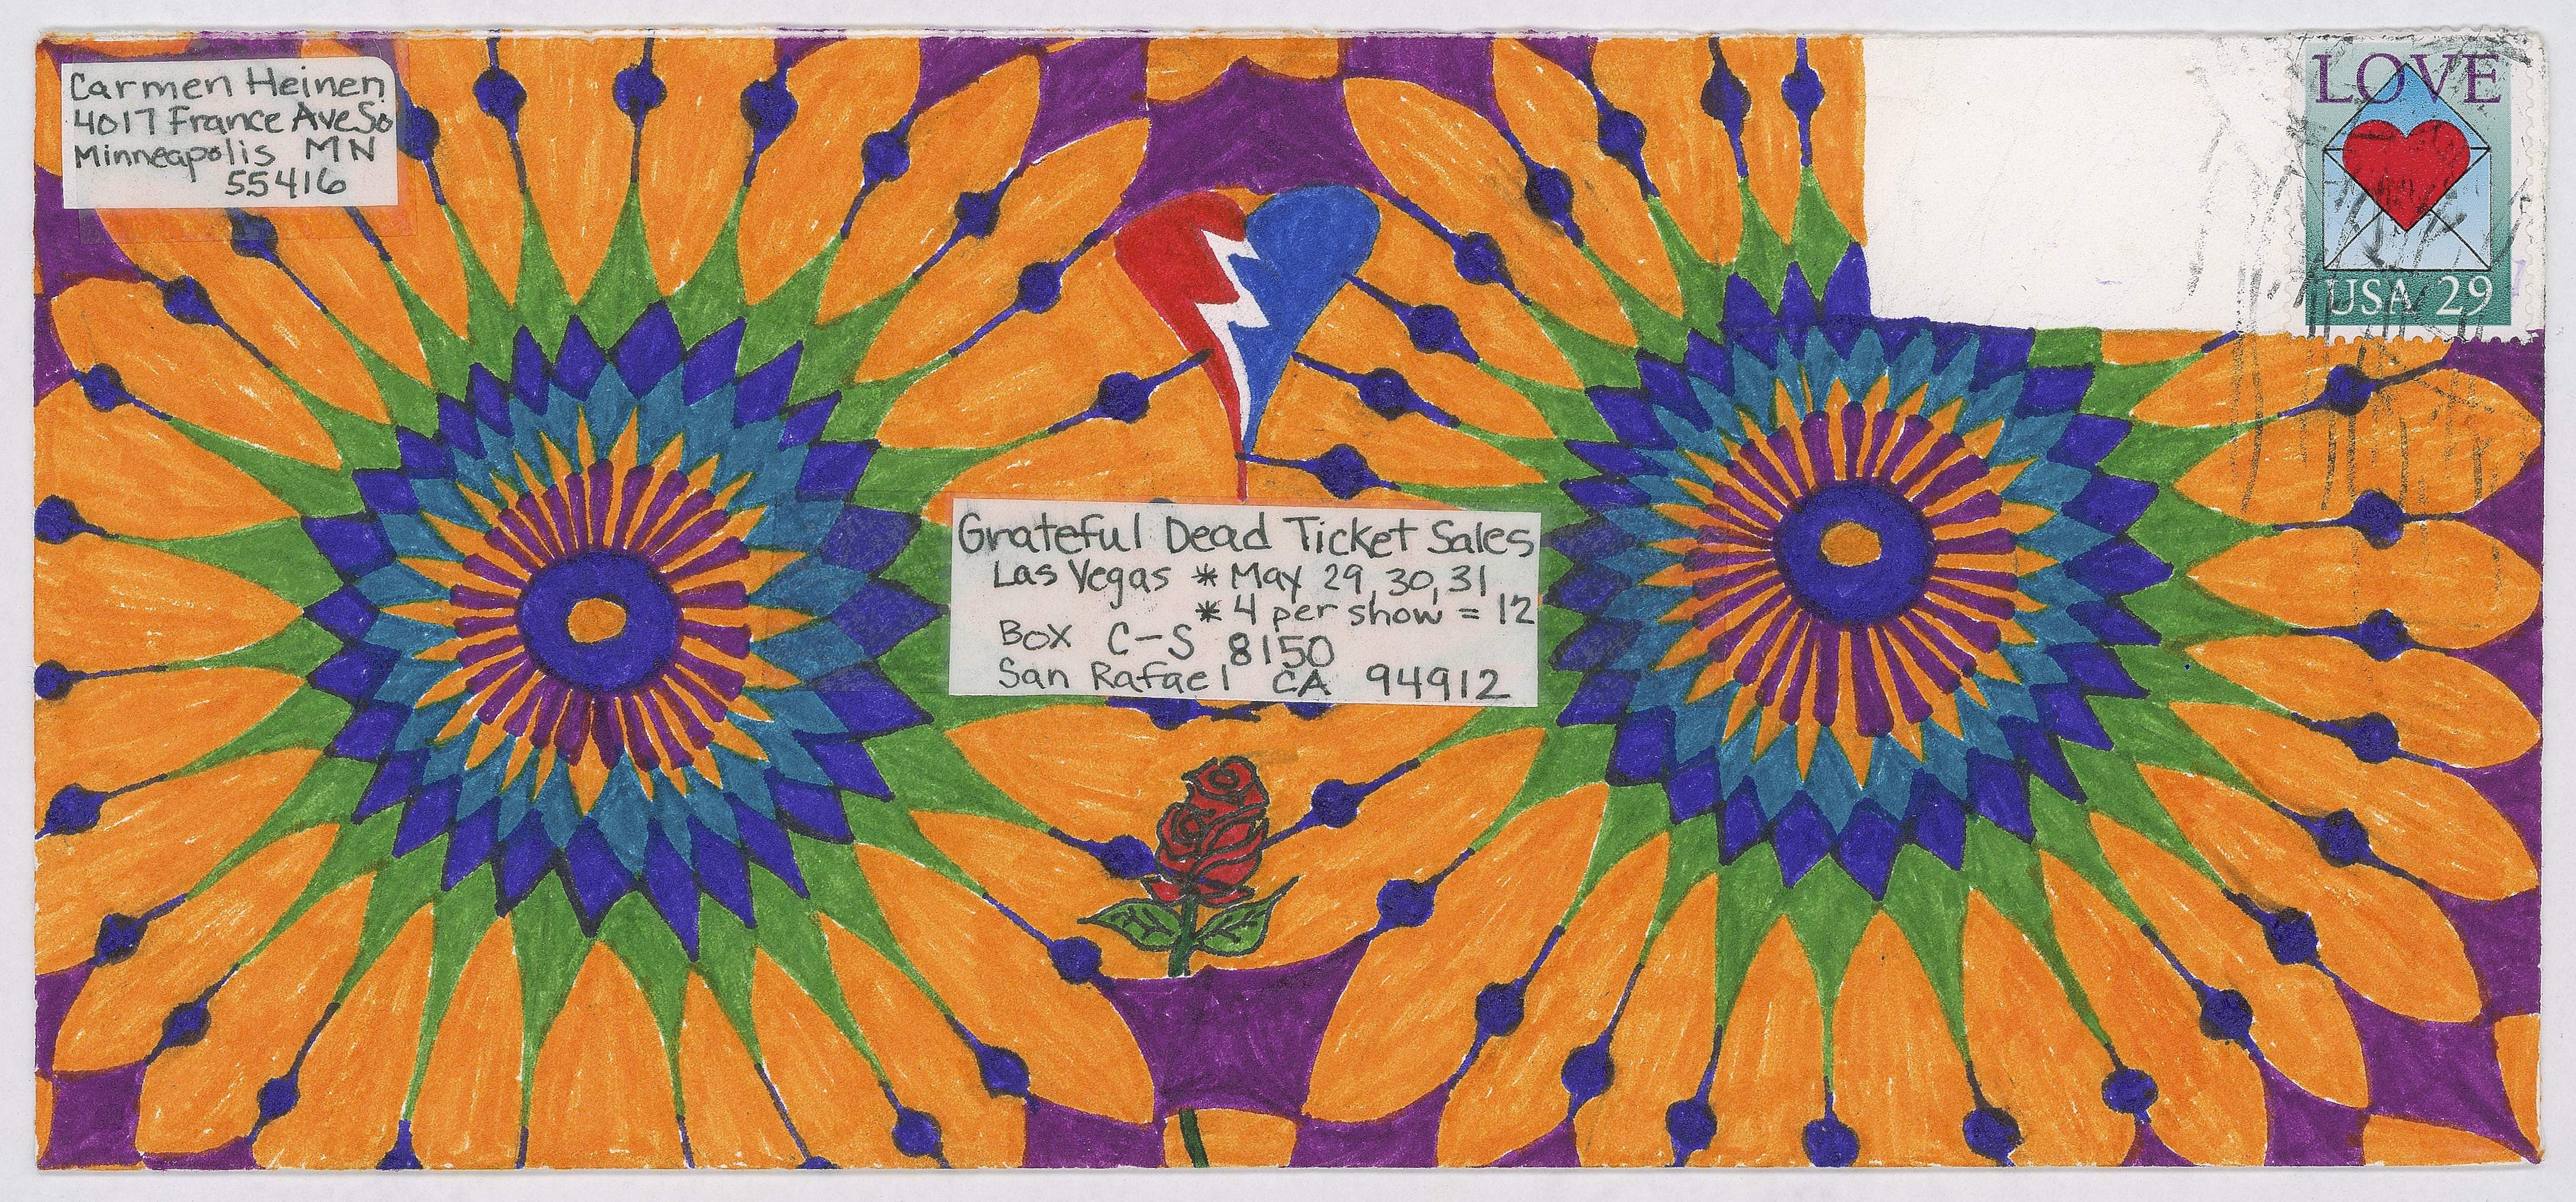 Carmen Heinen
4017 France Ave So
Minneapolis MN
55416
LOVE
USA 29
Grateful Dead Ticket Sales
Las Vegas * May 29, 30, 31
* 4 per show = 12
Box C-S 8150
San Rafael CA 94912